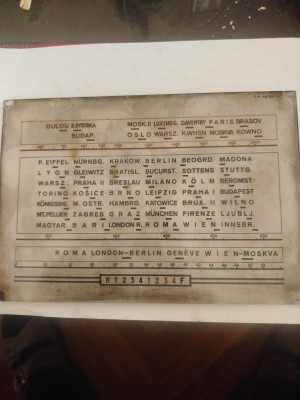 OULOU B.BYSTRIKA MOSK.II LUXEMBG. DAVENTRY PARIS BRASOV
BUDAP. OSLO WARSZ. K.WHSN MOSKVA KOWNO
P. EIFFEL NÜRNBG. KRAKÓW BERLIN BEOGRD. MADONA
LYON GLEIWITZ BRATISL. BUCURST. SOTTENS STUTTG.
WARSZ. PRAHA II BRESLAU MILANO KÖLN BEROMST.
TORINO KOŠICE BRNO LEIPZIG PRAHA I BUDAPEST
KÖNIGSBG. M.OSTR. HAMBRG. KATOWICE BRUX. II WILNO
MT.PELLIER ZAGREB GRAZ MÜNCHEN FIRENZE LJUBLJ.
MAGYAR. BARI LONDON R. ROMA WIEN INNSBR.
ROMA LONDON–BERLIN GENÈVE WIEN–MOSKVA
H 1 2 3 4 1 2 3 4 F